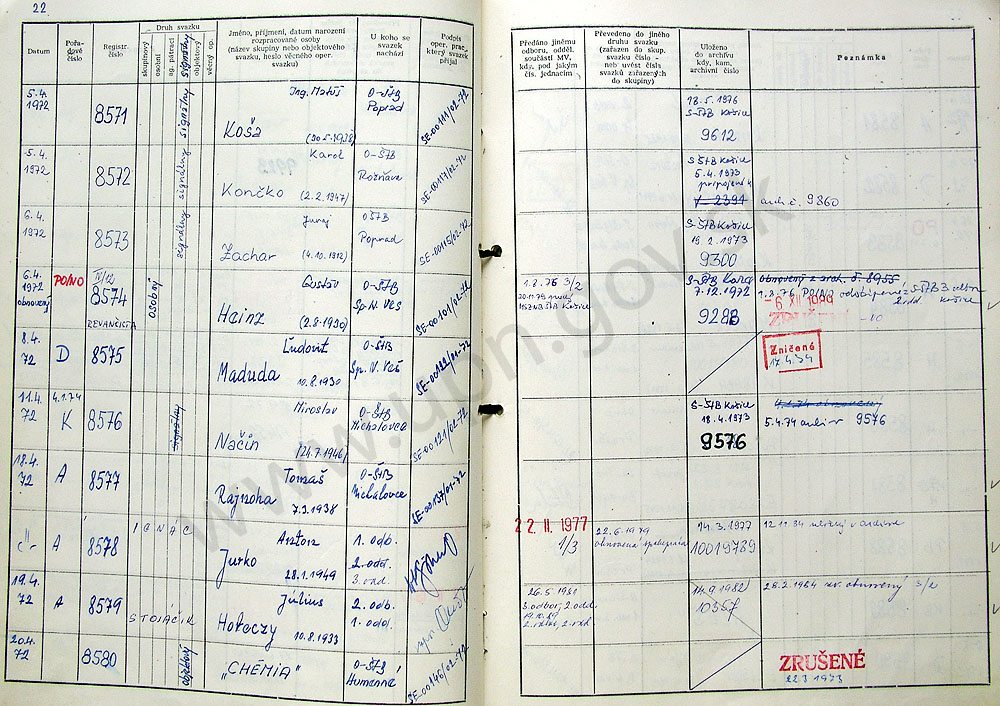 22.
Datum
Pořadové číslo
Registr. číslo
Druh svazku
skupinový
osobní
sg. pátrací
signálny
objektový
věcný op.
Jméno, příjmení, datum narození
rozpracované osoby
(název skupiny nebo objektového
svazku, heslo věcného oper.
svazku)
U koho se
svazek
nachází
Podpis
oper. prac.
který svazek
přijal
Předáno jinému
odboru, odděl.
součásti MV,
kdy, pod jakým
čís. jednacím
Převedeno do jiného
druhu svazku
(zařazen do skup.
svazku číslo -
neb uvést čísla
svazků zařazených
do skupiny)
Uloženo
do archívu
kdy, kam,
archivní číslo
Poznámka
5.4.
1972
8571
signálny
Ing. Matúš
Koša
(30.5.1938)
O-ŠtB
Poprad
SE-00111/02-72
18.5.1976
S-ŠtB Košice
9612
5.4.
1972
8572
signálny
Karol
Končko
(2.2.1947)
O-ŠtB
Rožňava
SE-00114/02-72
S-ŠtB Košice
5.4.1973
pripojený k
V-2391
arch.č. 9860
6.4.
1972
8573
signálny
Juraj
Zachar
(4.10.1912)
OŠtB
Poprad
SE-00115/02-72
S-ŠtB Košice
19.2.1973
9300
6.4.
1972
obnovený
PO/NO
8574
REVANČISTA
osobný
Gustav
Hainz
(2.8.1930)
O-ŠtB
Sp.N.Ves
SE-00101/02-72
1.8.76 3/2
7.12.1972
9288
Obnovený z arch. č. 8955
-6 XII 1989
ZRUŠENÉ
8.4.
72
D
8575
Ľudovít
Maduda
10.8.1930
O-ŠtB
Sp. N. Ves
SE-00122/01-72
Zničené
17.4.74
11.4.
72
4.1.74
K
8576
signálny
Miroslav
Način
(24.7.1946)
O-ŠtB
Michalovce
SE-00121/02-72
S-ŠtB Košice
18.4.1973
9576
5.4.74 archív 9576
18.4.
72
A
8577
Tomáš
Rajnoha
7.3.1938
O-ŠtB
Michalovce
SE-00137/01-72
-"-
A
8578
IGNÁC
Anton
Jurko
28.1.1949
1. odb.
2. odd.
22. II. 1977
1/3
22.6.1979
obnovená spolupráca
14.3.1977
10019789
19.4.
72
A
8579
STOJÁČIK
Július
Horeczy
10.8.1933
2. odb.
1. odd.
26.5.1981
3.odbor, 2.odd.
14.9.1982
10357
28.2.1984 zv. obnovený 3/2
20.4.
72
8580
objektový
„CHÉMIA"
O-ŠtB
Humenné
SE-00146/02-72
ZRUŠENÉ
22.3.1973
www.upn.gov.sk